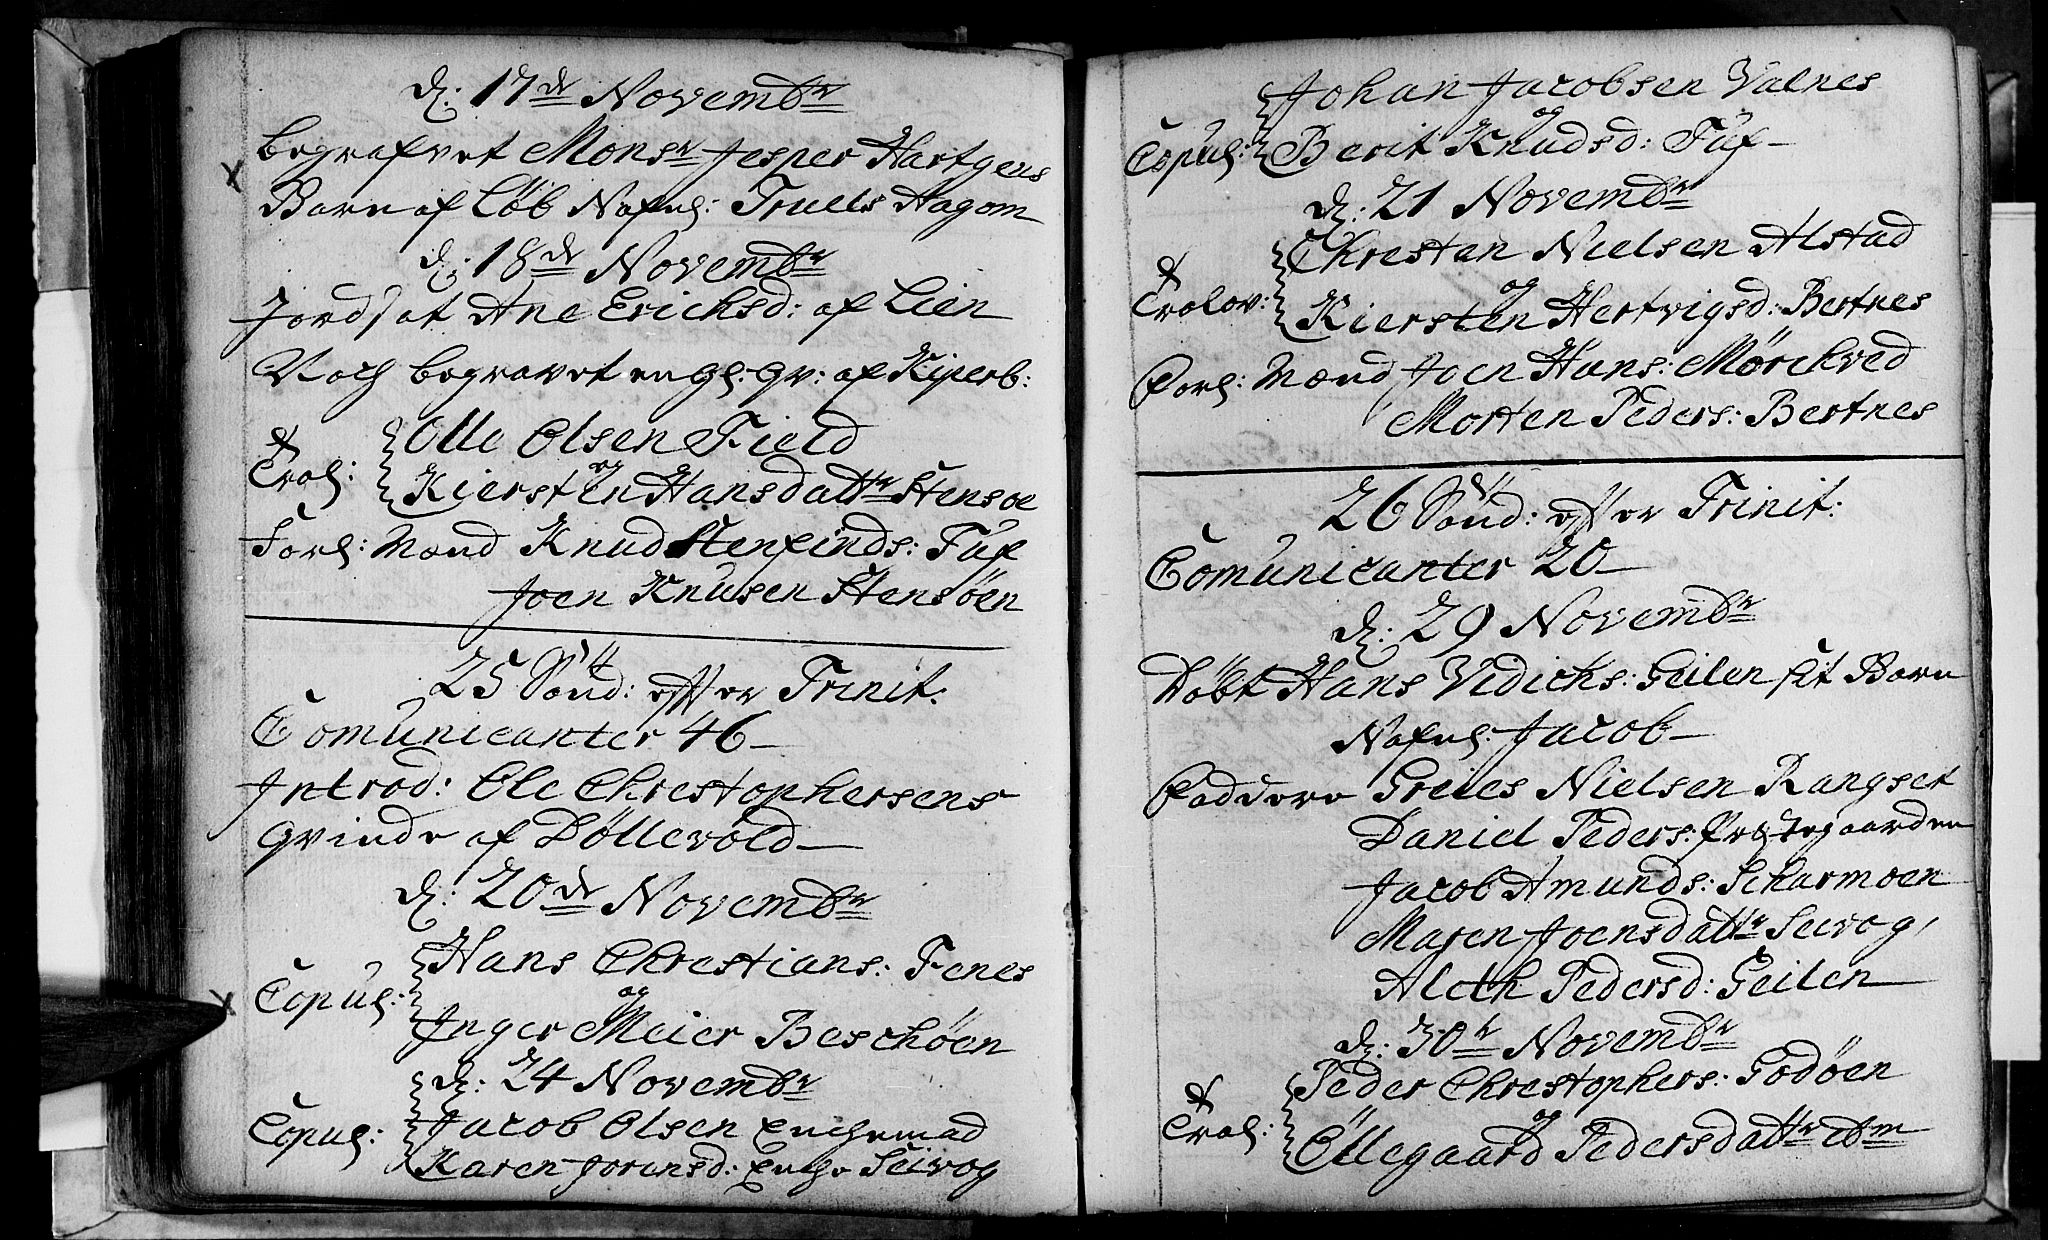 d: 17de Novembr
begrafvet Monsr Jesper Hartgens
Barn af Løb Nafnl: Truels Hagom
d: 18de Novembr
Jordsat Ane Erichsd: af Lien
Noch begravet en gl. qv: af Kiperb:
Olle Olsen Field
Trol: og
Kiersten Hansdattr Stensøe
Forl: Mænd Knud Stenfinds: Tuf
Joen Knusen Stensøen
25 Sønd: effter Trinit:
Comunicanter 46
Introd: Ole Chrestophersens
qvinde af Døllevold
d: 20de Novembr
Hans Chrestians: Fenes
Copul: og
Inger Meier Beschøen
d: 24 Novembr
Copul: Jacob Olsen Enchemad
Karen Jorensd: Enche Seivog
Johan Jacobsen Valnes
Copul: og
Berit Knudsd: Tuf
d: 21 Novembr
Chresten Nielsen Alstad
Trolov: og
Kiersten Hertvigsd: Bertnes
Forl: Mænd Joen Hans: Mørchved
Morten Peders: Bertnes
26 Sønd: effter Trinit:
Comunicanter 20
d: 29 Novembr
Døbt Hans Vidichs: Geilen sit Barn
Nafnl: Jacob
Faddere Greies Nielsen Rangset
Daniel Peders: Prestegaarden
Jacob Amunds: Scharmoen
Maren Joensdattr Seivog
Aleth Pedersd: Geilen
d: 30te Novembr
Peder Chrestophers: Godøen
Trol: og
Ollegaard Pedersdattr ibm